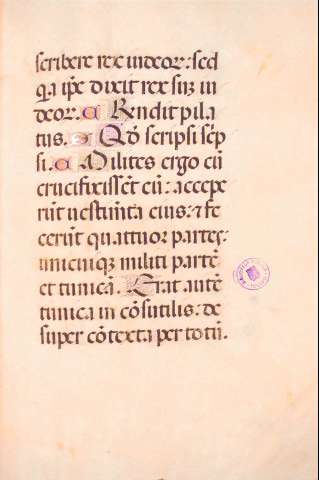 scribere rex iudeor: sed
qa ipe dixit rex suz iu
deor. Rendit pila
tus. Qď scripsi scp
si. Milites ergo cū
crucifixissēt eū: accepe
rūt uestimta eius: & fe
cerūt quattuor partes:
unicuiqz militi partē
et tunicā. Erat autē
tunica in cōsutilis: de
super cōtexta per totū.